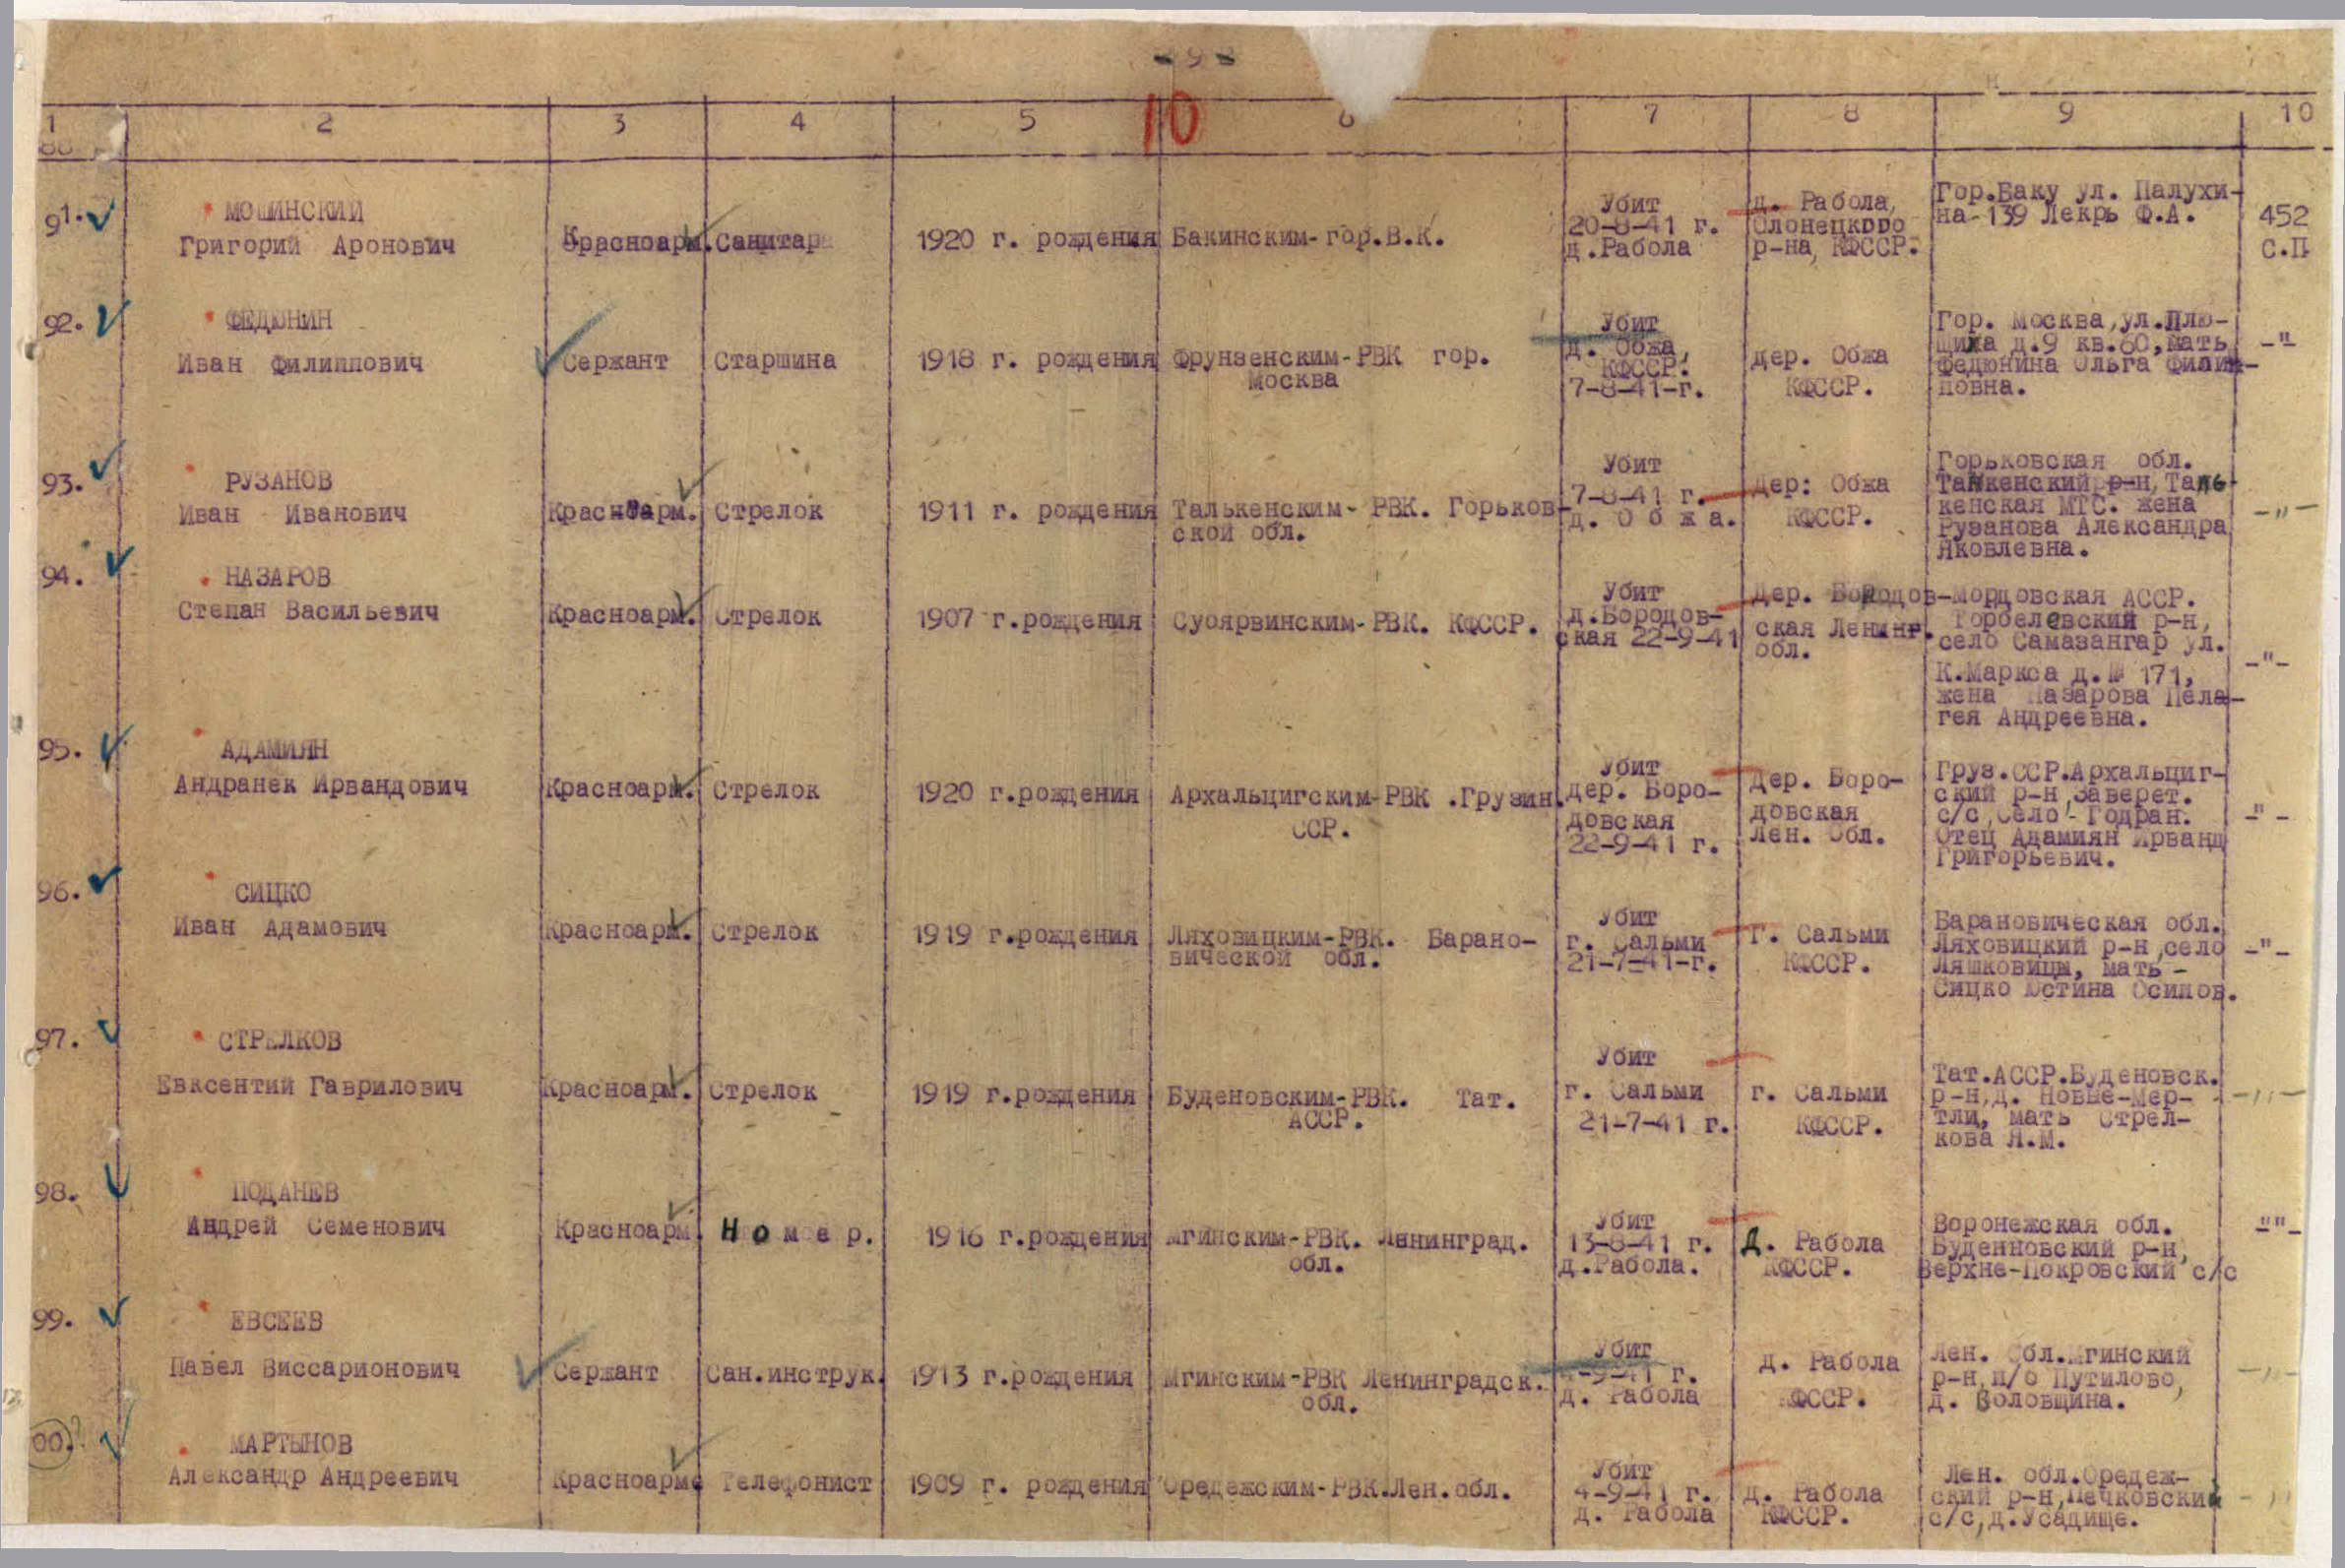 - 9 -
10
1 2 3 4 5 6 7 8 9 10
91. МОШИНСКИЙ
Григорий Аронович
Красноарм. Санитара
1920 г. рождения
Бакинским-гор.В.К.
Убит
20-8-41 г.
д.Рабола
д. Рабола,
Олонецкого
р-на, КФССР.
Гор.Баку ул. Палухи-
на-139 Лекрь Ф.А.
452
С.П
92. ФЕДЮНИН
Иван Филиппович
Сержант
Старшина
1918 г. рождения
Фрунзенским-РВК гор.
Москва
Убит
д. Обжа,
КФССР.
7-8-41-г.
дер. Обжа
КФССР.
Гор. Москва,ул.Плю-
щиха д.9 кв.60,мать
Федюнина Ольга Филип-
повна.
-"-
93. РУЗАНОВ
Иван Иванович
Красноарм.
Стрелок
1911 г. рождения
Талькенским- РВК. Горьков-
ской обл.
Убит
7-8-41 г.
д. О б ж а.
Дер: Обжа
КФССР.
Горьковская обл.
Талкенский р-н,Таль-
кенская МТС. жена
Рузанова Александра
Яковлевна.
-"-
94. НАЗАРОВ
Степан Васильевич
Красноарм.
Стрелок
1907 г.рождения
Суоярвинским-РВК. КФССР.
Убит
д.Бородов-
ская 22-9-41
Дер. Бородов-
ская Ленинг.
обл.
Мордовская АССР.
Торбелевский р-н,
село Самазангар ул.
К.Маркса д.№ 171,
жена Назарова Пела-
гея Андреевна.
-"-
95. АДАМИЯН
Андранек Ирвандович
Красноарм.
Стрелок
1920 г.рождения
Архальцигским-РВК .Грузин.
ССР.
Убит
дер. Боро-
довская
22-9-41 г.
Дер. Боро-
довская
Лен. Обл.
Груз.ССР.Архальциг-
ский р-н,Заверет.
с/с,Село - Годран.
Отец Адамиян Ирванд
Григорьевич.
-"-
96. СИЦКО
Иван Адамович
Красноарм.
Стрелок
1919 г.рождения
Ляховицким-РВК. Барано-
вической обл.
Убит
г. Сальми
21-7-41-г.
Г. Сальми
КФССР.
Барановическая обл.
Ляховицкий р-н,село
Ляшковицы, мать -
Сицко Юстина Осипов.
-"-
97. СТРЕЛКОВ
Евксентий Гаврилович
Красноарм.
Стрелок
1919 г.рождения
Буденовским-РВК. Тат.
АССР.
Убит
г. Сальми
21-7-41 г.
г. Сальми
КФССР.
Тат.АССР.Буденовск.
р-н,д. Новые-Мер-
тли, мать Стрел-
кова Я.М.
-"-
98. ПОДАНЕВ
Андрей Семенович
Красноарм.
Н о м е р.
1916 г.рождения
Мгинским-РВК. Ленинград.
обл.
Убит
13-8-41 г.
д.Рабола.
Д. Рабола
КФССР.
Воронежская обл.
Буденновский р-н,
Верхне-Покровский с/с
-""-
99. ЕВСЕЕВ
Павел Виссарионович
Сержант
Сан.инструк.
1913 г.рождения
Мгинским-РВК Ленинградск.
обл.
Убит
4-9-41 г.
д. Рабола
д. Рабола
КФССР.
Лен. Обл.Мгинский
р-н,п/о Путилово,
д. Воловщина.
-"-
00. МАРТЫНОВ
Александр Андреевич
Красноарме
Телефонист
1909 г. рождения
Оредежским-РВК.Лен.обл.
Убит
4-9-41 г.
д. Рабола
д. Рабола
КФССР.
Лен. обл.Оредеж-
ский р-н,Печковский
с/с,д.Усадище.
-"-